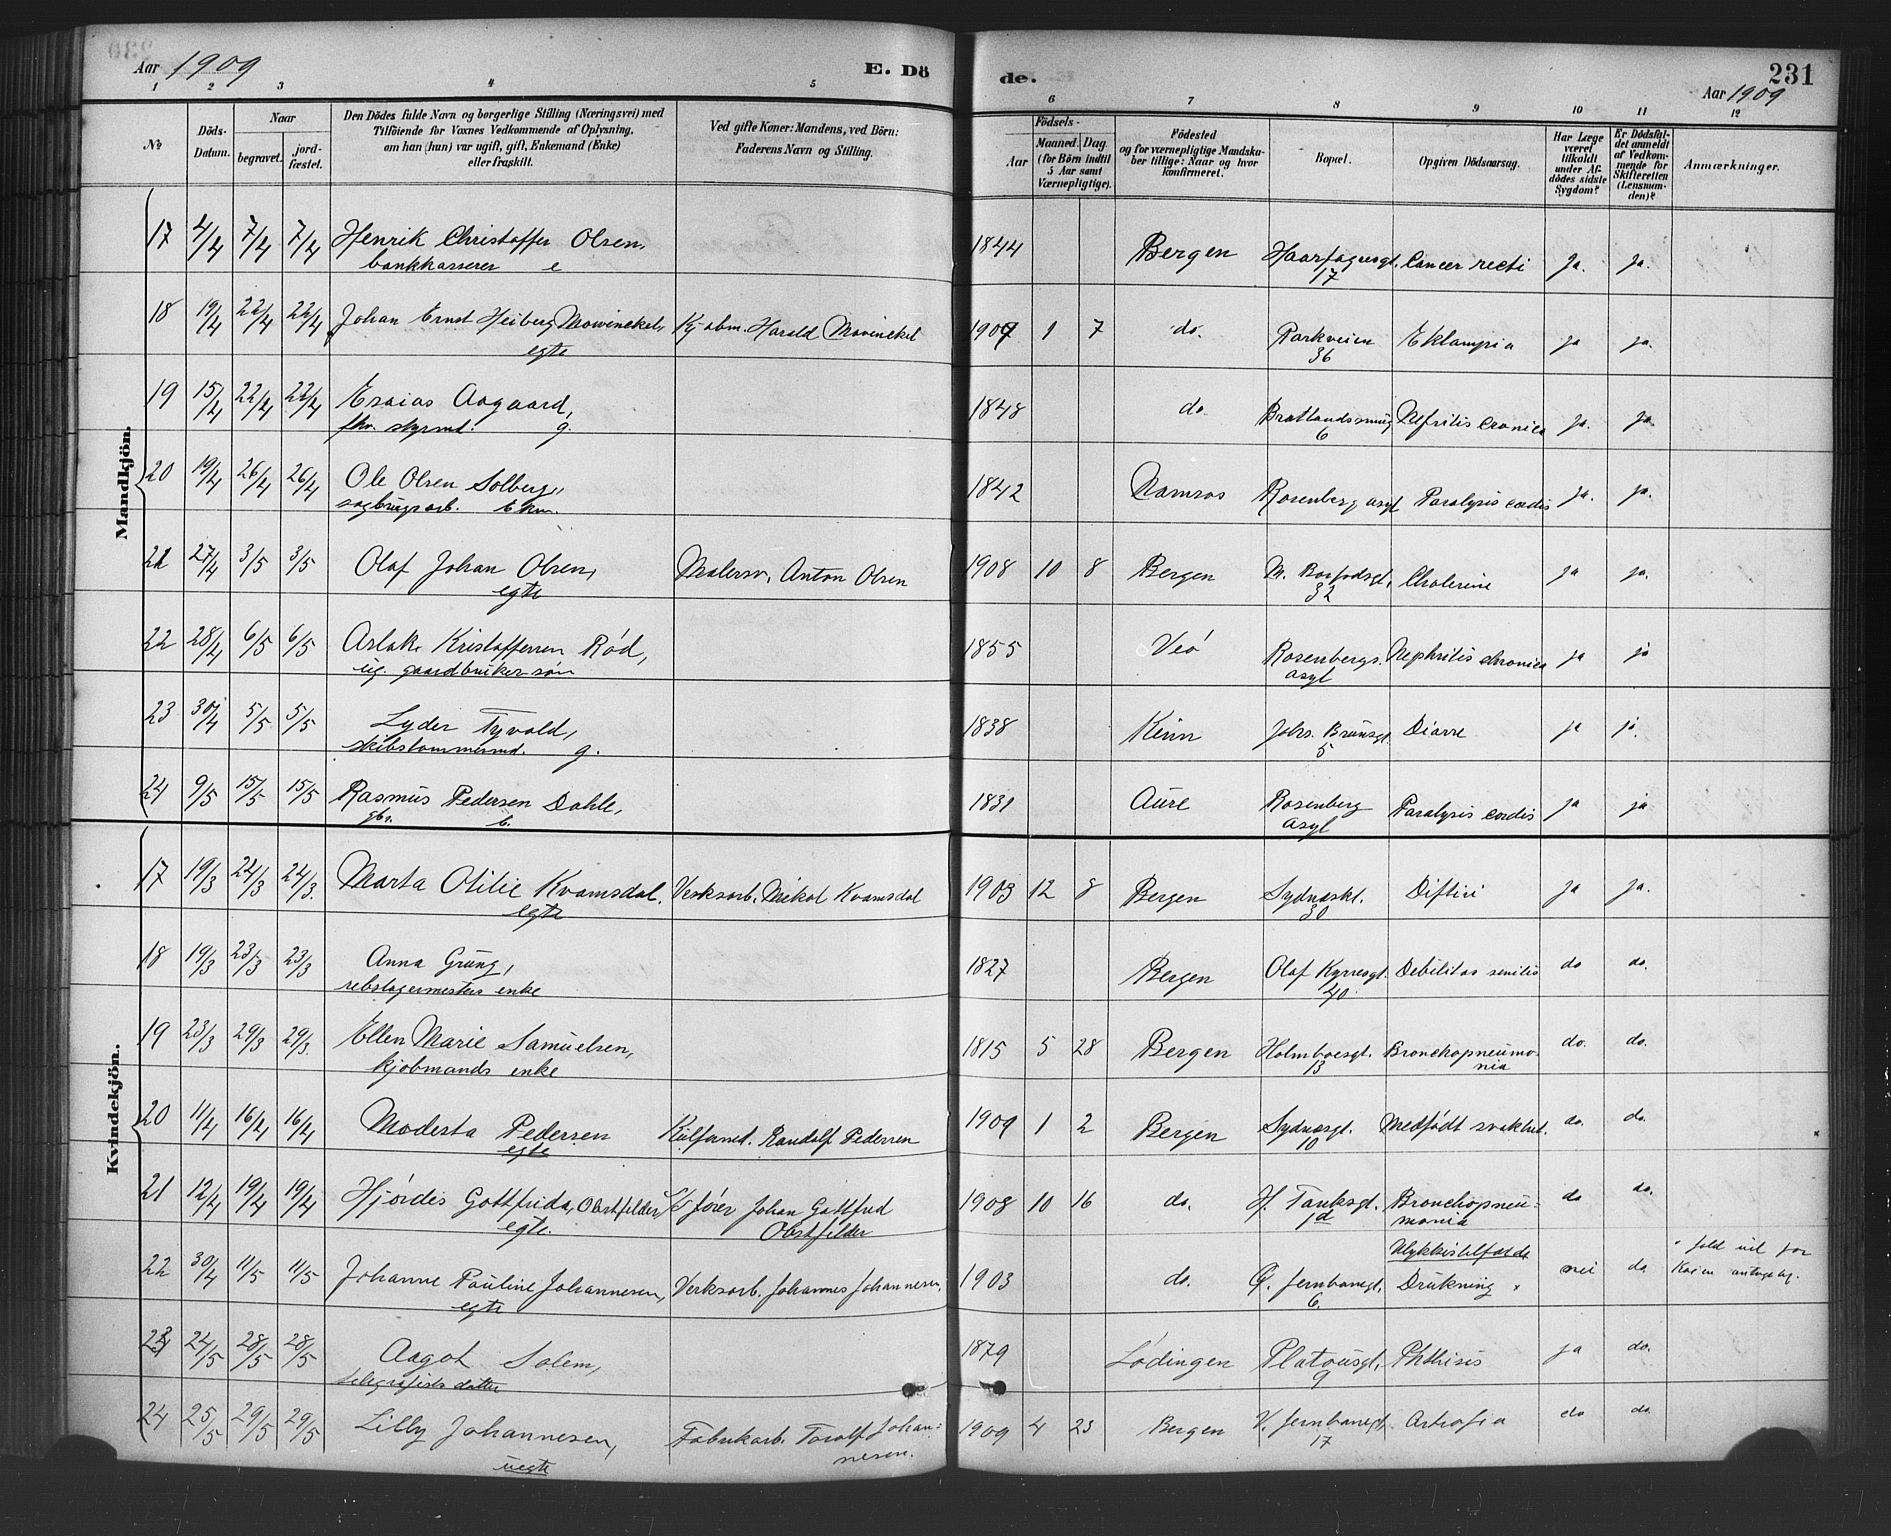 Aar 1909 E. Dö de. Aar 1909 231
1 2 3 4 5 6 7 8 9 10 11 12
No | Döds-Datum. | Naar begravet. | jordfæstet. | Den Dödes fulde Navn og borgerlige Stilling (Næringsvei) med Tilföiende for Voxnes Vedkommende af Oplysning, om han (hun) var ugift, gift, Enkemand (Enke) eller fraskilt. | Ved gifte Koner: Mandens, ved Börn: Faderens Navn og Stilling. | Födsels- Aar | Maaned. | Dag. (for Börn indtil 5 Aar samt Værnepligtige). | Födested og for værnepligtige Mandskaber tillige: Naar og hvor konfirmeret. | Bopæl. | Opgiven Dödsaarsag. | Har Læge været tilkaldt under Afdödes sidste Sygdom? | Er Dödsfaldet anmeldt af Vedkommende for Skifteretten (Lensmanden)? | Anmærkninger.
Mandkjön.
17 4/4 7/4 7/4 Henrik Christoffer Olsen, 1844 Bergen Haarfagresgt. Cancer recti Ja. ja.
bankkasserer e 17
18 19/4 22/4 22/4 Johan Ernst Heiberg Mowinckel, Kjøbm. Harald Mowinckel 1909 1 7 do. Parkveien Eklampia ja ja.
egte 36
19 15/4 22/4 22/4 Esaias Aagaard, 1848 do. Nefritis cronica ja. ja.
fhv. styrmd. g. 6
20 19/4 26/4 26/4 Ole Olsen Solberg, 1842 Namsos Rosenberg asyl Paralysis cordis ja. ja.
sagbrugsarb. Ekm.
21 27/4 3/5 3/5 Olaf Johan Olsen, Malersv. Anton Olsen 1908 10 8 Bergen Cholerine ja ja.
egte 32
22 28/4 6/5 6/5 Aslak Kristoffersen Rød, 1855 Veö Rosenbergs Nephritis chronica ja ja
ug. gaardbruker søn asyl
23 30/4 5/5 5/5 Lyder Tyvold, 1838 Kinn Johs. Brunsgt. Diarre ja ja.
skibstømmermd. g. 5
24 9/5 15/5 15/5 Rasmus Pedersen Dahle, 1831 Aure Rosenberg Paralysis cordis ja ja
gbr. asyl
Kvindekjön.
17 19/3 24/3 24/3. Marta Otilie Kvamsdal. Verksarb. Nikol Kvamsdal 1903 12 8 Bergen Sydnæskl. Difteri ja ja.
egte 30
18 19/3 23/3 23/3 Anna Grung, 1827 Bergen Olaf Kyrresgt. Debilitas senilis do do.
rebslagermesters enke 40.
19 23/3 29/3 29/3. Ellen Marie Samuelsen, 1815 5 28 Bergen Holmboesgt. Bronchopneumo-
kjøbmands enke 13 nia do. do.
20 11/4 16/4 16/4 Modesta Pedersen Randolf Pedersen 1909 1 2 Bergen Sydnæsgt. Medfødt svakhet. do. do.
egte 10
21 12/4 19/4 19/4 Hjørdis Gottfrida Obstfelder S/S fører Johan Gottfred 1908 10 16 do. H. Tanksgt. Bronchopneu- do do.
egte. Obstfelder 1d monia
22 30/4 11/5 11/5 Johanne Pauline Johannesen, Verksarb. Johannes Johannesen, 1903 do. Ø. Jernbanegt. Ulykkestilfælde Drukning × nei do × fald ut for
egte 6. Kaien antagelig.
23 24/5 28/5 28/5 Aagot Solem, 1879 Lødingen Platousgt. Phthisis ja do.
telegrafists datter 9
24 25/5 29/5 29/5 Lilly Johannesen, Fabrikarb. Toralf Johan- 1909 4 23 Bergen V. Jernbanegt. Astrofia do do
uegte nesen. 17